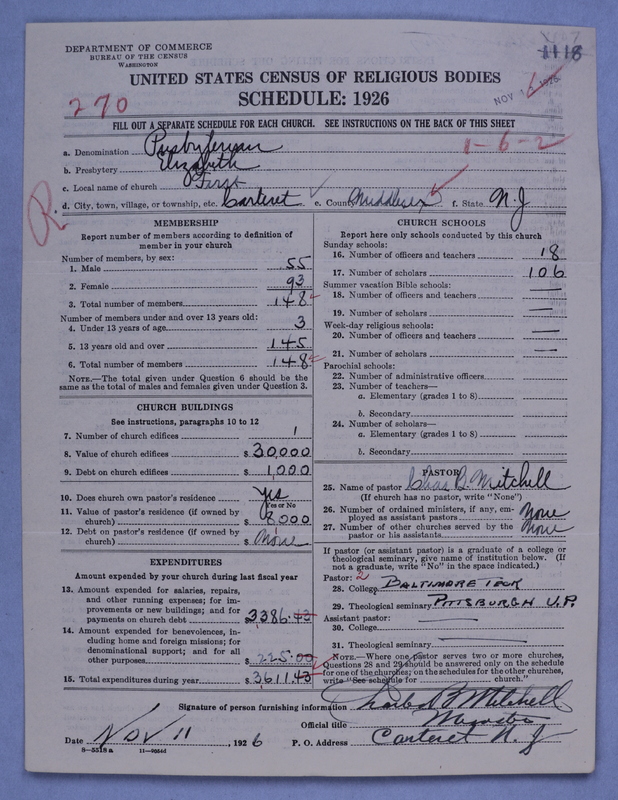 DEPARTMENT OF COMMERCE
BUREAU OF THE CENSUS
WASHINGTON
1118
UNITED STATES CENSUS OF RELIGIOUS BODIES
SCHEDULE: 1926
NOV 1926
270
FILL OUT A SEPARATE SCHEDULE FOR EACH CHURCH. SEE INSTRUCTIONS ON THE BACK OF THIS SHEET
1-6-2
a. Denomination Presbyterian
b. Presbytery Elizabeth
c. Local name of church First
d. City, town, village, or township, etc. Carteret e. County Middlesex f. State N.J
MEMBERSHIP
Report number of members according to definition of
member in your church
Number of members, by sex:
1. Male 55
2. Female 93
3. Total number of members 148
Number of members under and over 13 years old:
4. Under 13 years of age 3
5. 13 years old and over 145
6. Total number of members 148
NOTE.—The total given under Question 6 should be the
same as the total of males and females given under Question 3.
CHURCH BUILDINGS
See instructions, paragraphs 10 to 12
7. Number of church edifices 1
8. Value of church edifices $ 30,000
9. Debt on church edifices $ 1,000
10. Does church own pastor's residence Yes
Yes or No
11. Value of pastor's residence (if owned by
church) $ 8,000
12. Debt on pastor's residence (if owned by
church) $ None
EXPENDITURES
Amount expended by your church during last fiscal year
13. Amount expended for salaries, repairs,
and other running expenses; for im-
provements or new buildings; and for
payments on church debt $ 3386.43
14. Amount expended for benevolences, in-
cluding home and foreign missions; for
denominational support; and for all
other purposes $ 225.00
15. Total expenditures during year $ 3611.43
CHURCH SCHOOLS
Report here only schools conducted by this church
Sunday schools:
16. Number of officers and teachers 18
17. Number of scholars 106
Summer vacation Bible schools:
18. Number of officers and teachers —
19. Number of scholars —
Week-day religious schools:
20. Number of officers and teachers —
21. Number of scholars —
Parochial schools:
22. Number of administrative officers
23. Number of teachers—
a. Elementary (grades 1 to 8)
b. Secondary
24. Number of scholars—
a. Elementary (grades 1 to 8)
b. Secondary
PASTOR
25. Name of pastor Chas B. Mitchell
(If church has no pastor, write "None")
26. Number of ordained ministers, if any, em-
ployed as assistant pastors None
27. Number of other churches served by the
pastor or his assistants None
If pastor (or assistant pastor) is a graduate of a college or
theological seminary, give name of institution below. (If
not a graduate, write "No" in the space indicated.)
Pastor: 2
28. College BALTIMORE
29. Theological seminary PITTSBURGH U.P.
Assistant pastor:
30. College
31. Theological seminary
NOTE.—Where one pastor serves two or more churches,
Questions 28 and 29 should be answered only on the schedule
for one of the churches; on the schedules for the other churches,
write "See schedule for church."
Signature of person furnishing information Charles B Mitchell
Official title Minister
Date Nov 11, 1926 P. O. Address Carteret N. J
8-5518a 11-9564d